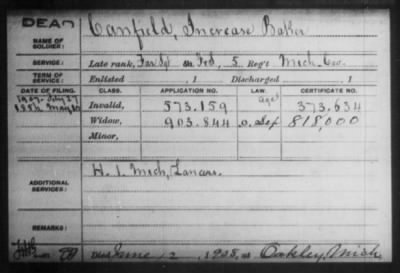 DEAD
NAME OF SOLDIER: Canfield, Increase Baker
SERVICE: Late rank, Far Sgt Co Fed, 5 Reg't Mich. Cav.
TERM OF SERVICE: Enlisted , 1 Discharged , 1
DATE OF FILING. CLASS. APPLICATION NO. LAW. CERTIFICATE NO.
Invalid, 573.159 373,634
Widow, 903.844 818,000
Minor,
ADDITIONAL SERVICES: H. 1. Mich, Lancers.
REMARKS:
Died June 2, at Oakley, Mich